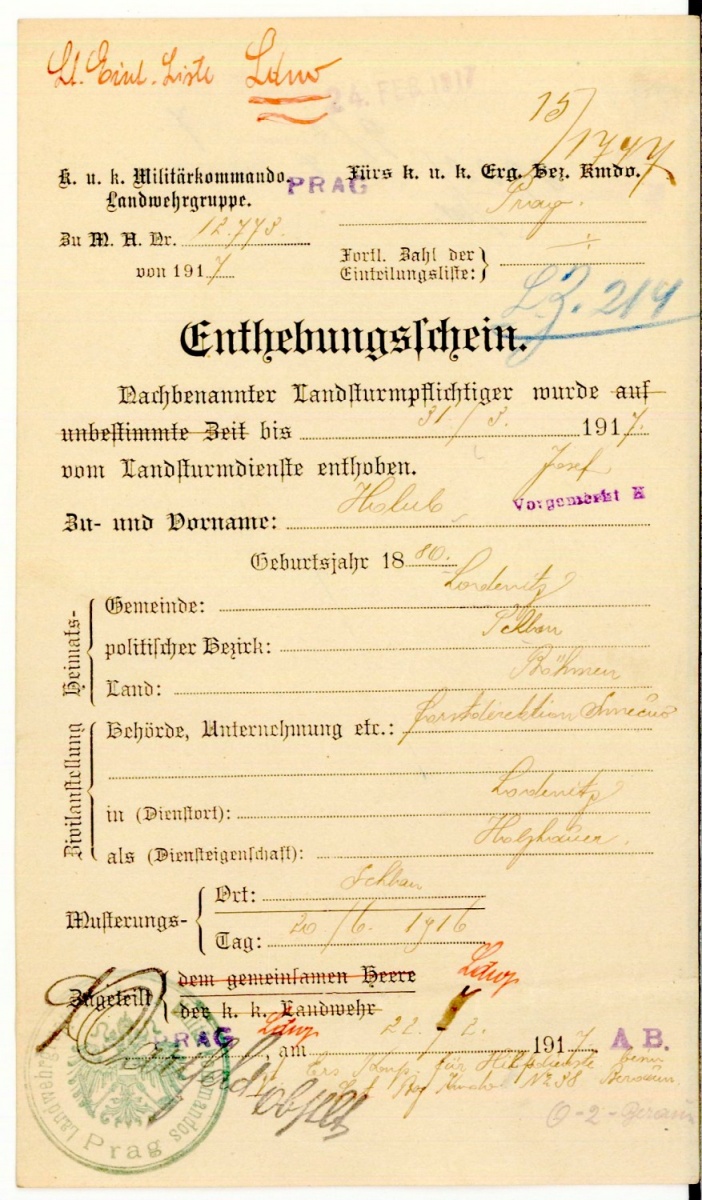 Ldw
24. FEB. 1917
15/1747
K. u. k. Militärkommando PRAG
Landwehrgruppe.
Fürs k. u. k. Erg. Bez. Kmdo.
Prag.
Zu M. A. Nr. 12.773.
von 1917
Fortl. Zahl der
Einteilungsliste:
L.Z. 214
Enthebungsschein.
Nachbenannter Landsturmpflichtiger wurde auf
unbestimmte Zeit bis 31/3. 1917.
vom Landsturmdienste enthoben.
Josef
Vorgemerkt K
Zu- und Vorname: Holub
Geburtsjahr 1880.
Heimats-
Gemeinde: Lodenitz
politischer Bezirk: Schlan
Land: Böhmen
Zivilanstellung
Behörde, Unternehmung etc.: Forstdirektion Smečno
in (Dienstort): Lodenitz
als (Diensteigenschaft): Holzhauer.
Musterungs-
Ort: Schlan
Tag: 20/6. 1916
Zugeteilt
dem gemeinsamen Heere
der k. k. Landwehr
PRAG, am 22. 2. 1917. A B.
für Hilfsdienste beim
N: 38 Beraun
0-2-Beraun
Prag